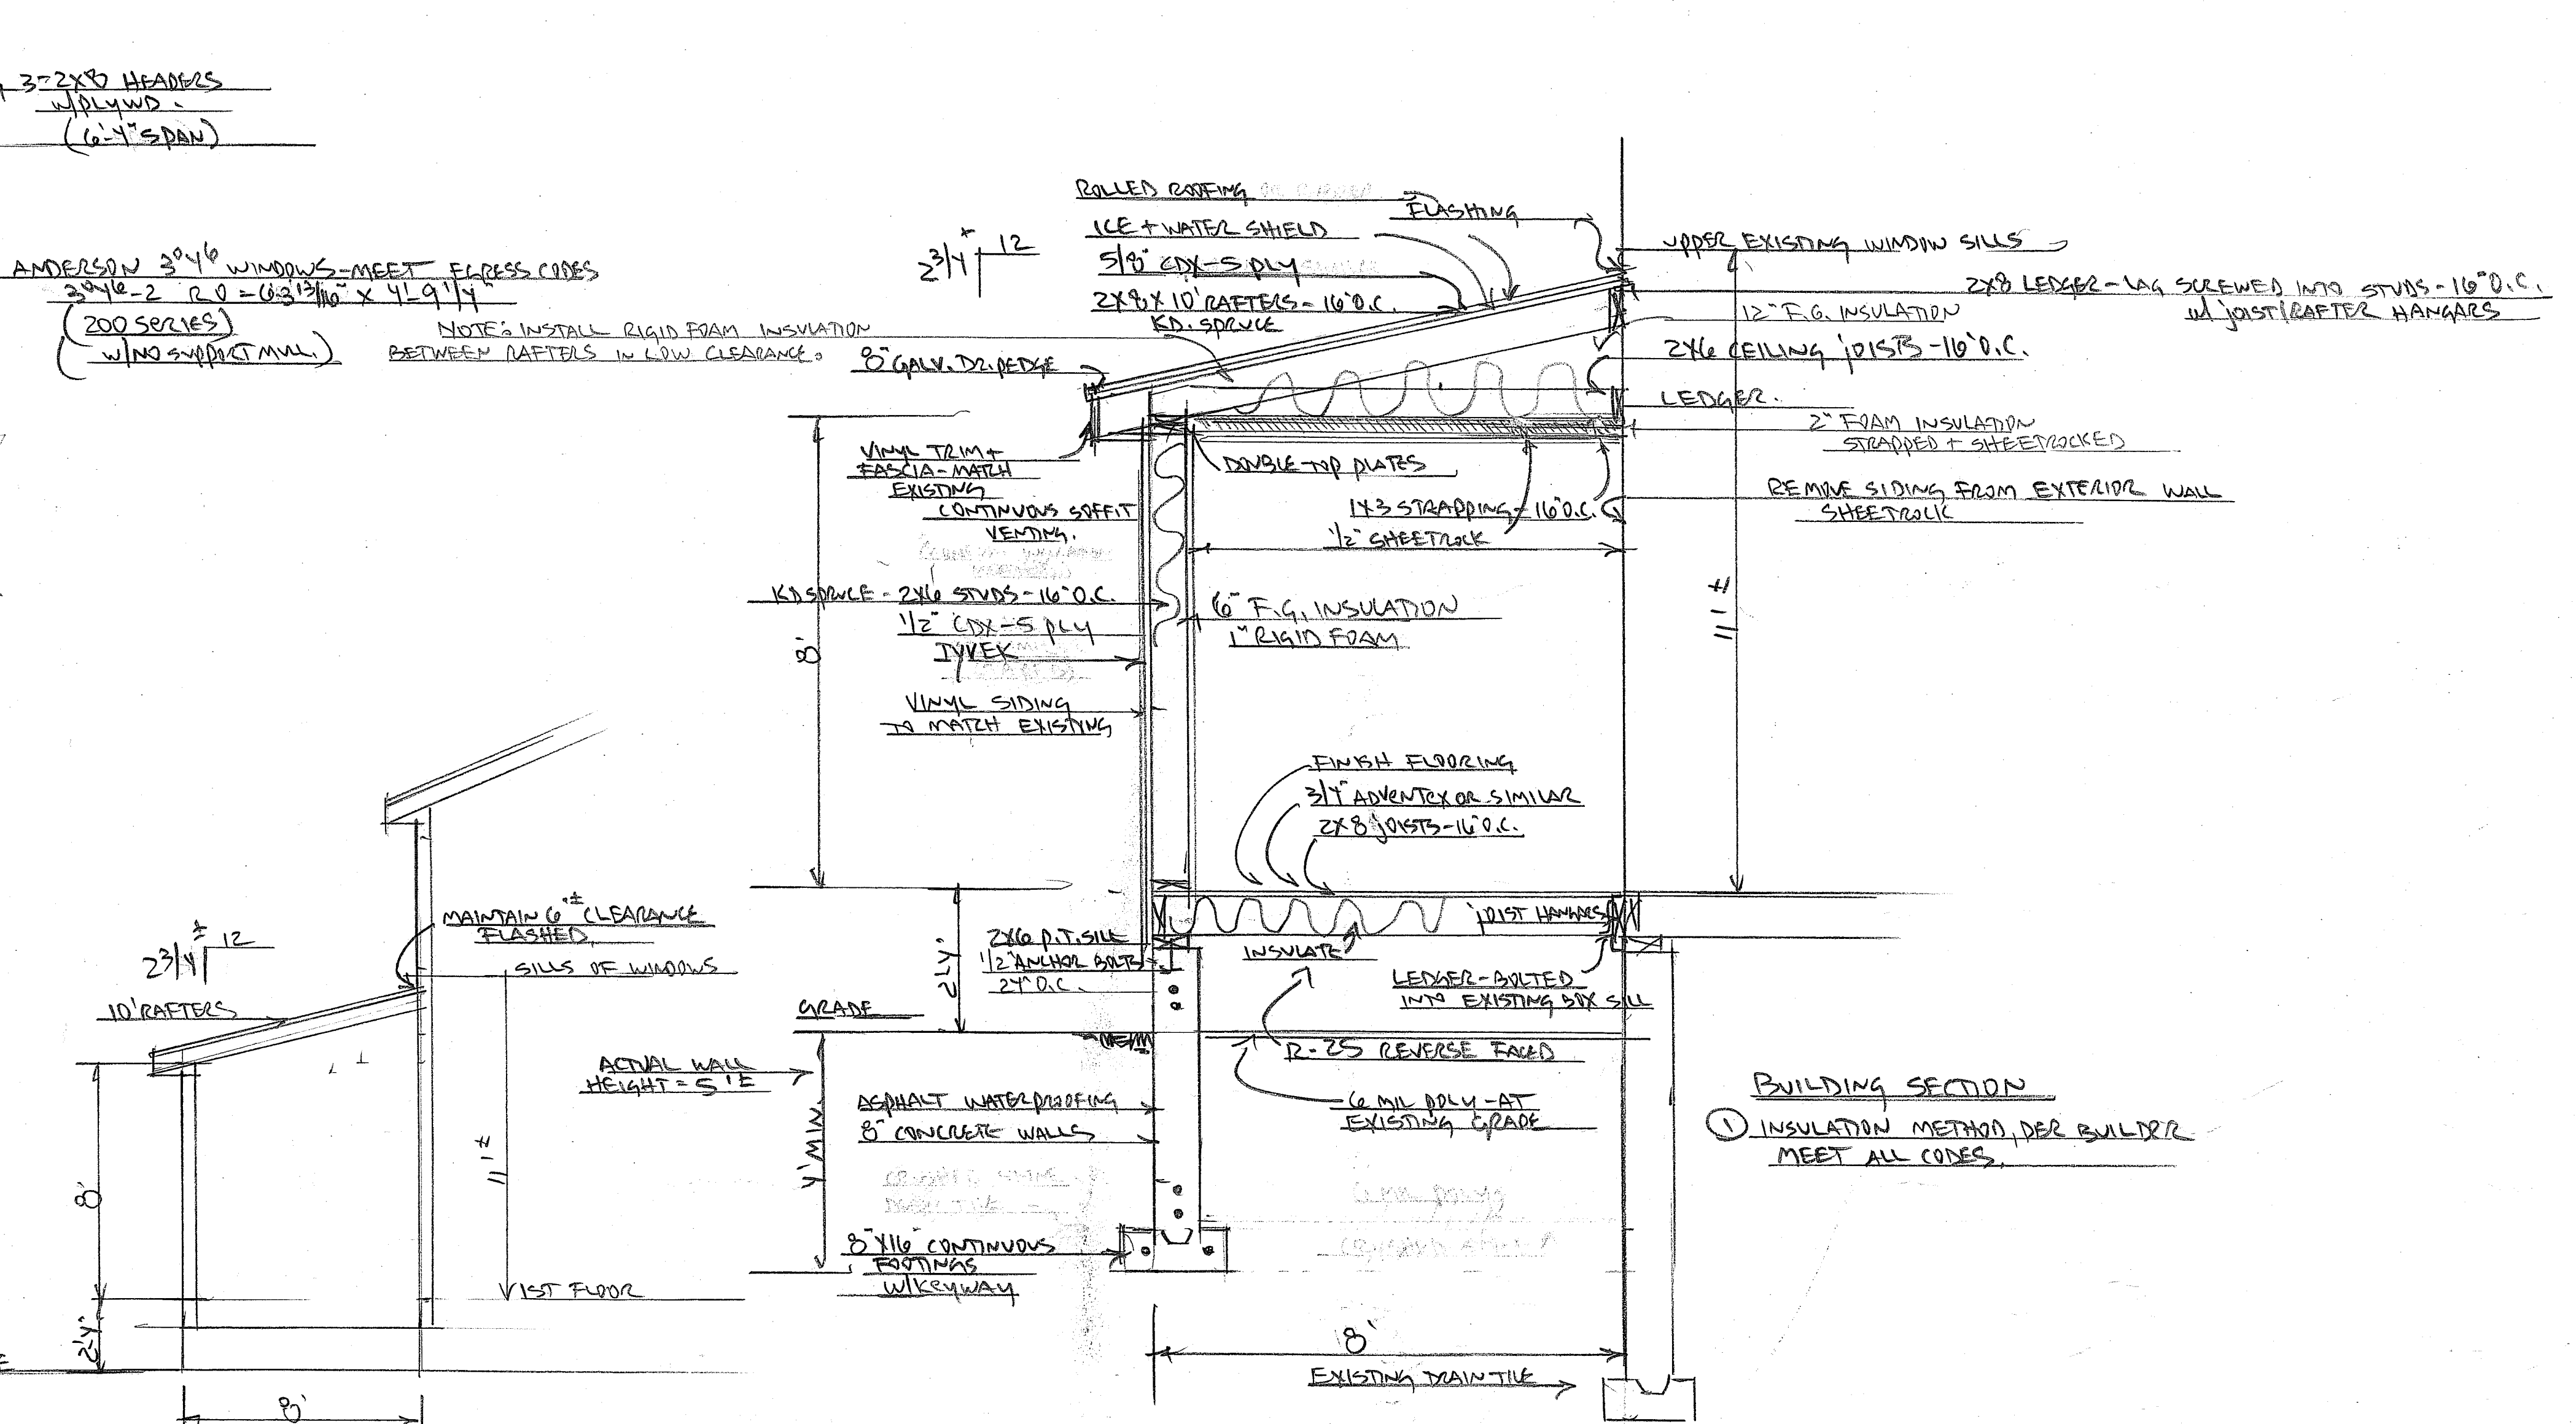 3-2X8 HEADERS
W/PLYWD.
(6'-4" SPAN)
ANDERSON 3⁰4⁶ WINDOWS-MEET EGRESS CODES
3⁰4⁶-2 RO = 6-3 13/16" X 4'-9 1/4"
(200 SERIES)
(W/NO SUPPORT MULL.)
NOTE: INSTALL RIGID FOAM INSULATION
BETWEEN RAFTERS IN LOW CLEARANCE.
ROLLED ROOFING
FLASHING
ICE + WATER SHIELD
5/8" CDX-5 PLY
2X8X10' RAFTERS-16"O.C.
KD. SPRUCE
2 3/4± 12
8" GALV. DR.PEDGE
UPPER EXISTING WINDOW SILLS
2X8 LEDGER-LAG SCREWED INTO STUDS-16"O.C.
W/ JOIST/RAFTER HANGARS
12" F.G. INSULATION
2X6 CEILING JOISTS-16"O.C.
LEDGER.
2" FOAM INSULATION
STRAPPED + SHEETROCKED
REMOVE SIDING FROM EXTERIOR WALL
SHEETROCK
VINYL TRIM +
FASCIA-MATCH
EXISTING
CONTINUOUS SOFFIT
VENTING.
DOUBLE-TOP PLATES
1X3 STRAPPING-16"O.C.
1/2" SHEETROCK
KD SPRUCE - 2X6 STUDS-16"O.C.
1/2" CDX-5 PLY
TYVEK
VINYL SIDING
TO MATCH EXISTING
6" F.G. INSULATION
1" RIGID FOAM
8'
11'±
FINISH FLOORING
3/4" ADVENTEX OR SIMILAR
2X8 JOISTS-16"O.C.
JOIST HANGARS
INSULATE
2X6 P.T. SILL
1/2" ANCHOR BOLTS
24" O.C.
2'-4"
LEDGER-BOLTED
INTO EXISTING BOX SILL
GRADE
R-25 REVERSE FACED
ACTUAL WALL
HEIGHT = 5'±
6 MIL POLY-AT
EXISTING GRADE
ASPHALT WATERPROOFING
8" CONCRETE WALLS
4' MIN
8"X16" CONTINUOUS
FOOTINGS
W/KEYWAY
8'
EXISTING DRAIN TILE
BUILDING SECTION
① INSULATION METHOD, PER BUILDER
MEET ALL CODES.
MAINTAIN 6"± CLEARANCE
FLASHED.
SILLS OF WINDOWS
2 3/4± 12
10' RAFTERS
11'±
8'
1ST FLOOR
2'-4"
8'